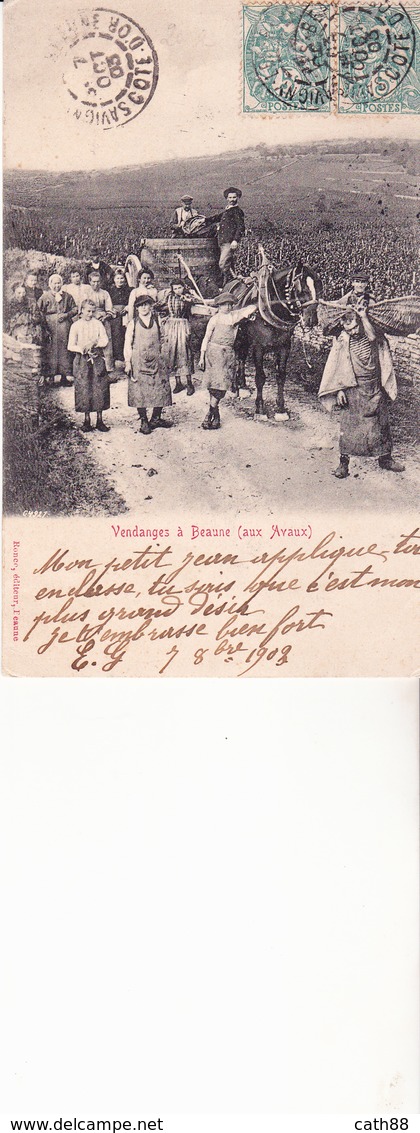 CÔTE-D'OR
SAVIGNY
7
OCT
03
POSTES
POSTES
64957.
Vendanges à Beaune (aux Avaux)
Ronco, éditeur, Beaune
Mon petit jean applique-toi
en classe, tu sais que c'est mon
plus grand désir
Je t'embrasse bien fort
E. G 7 8bre 1903
www.delcampe.net
cath88